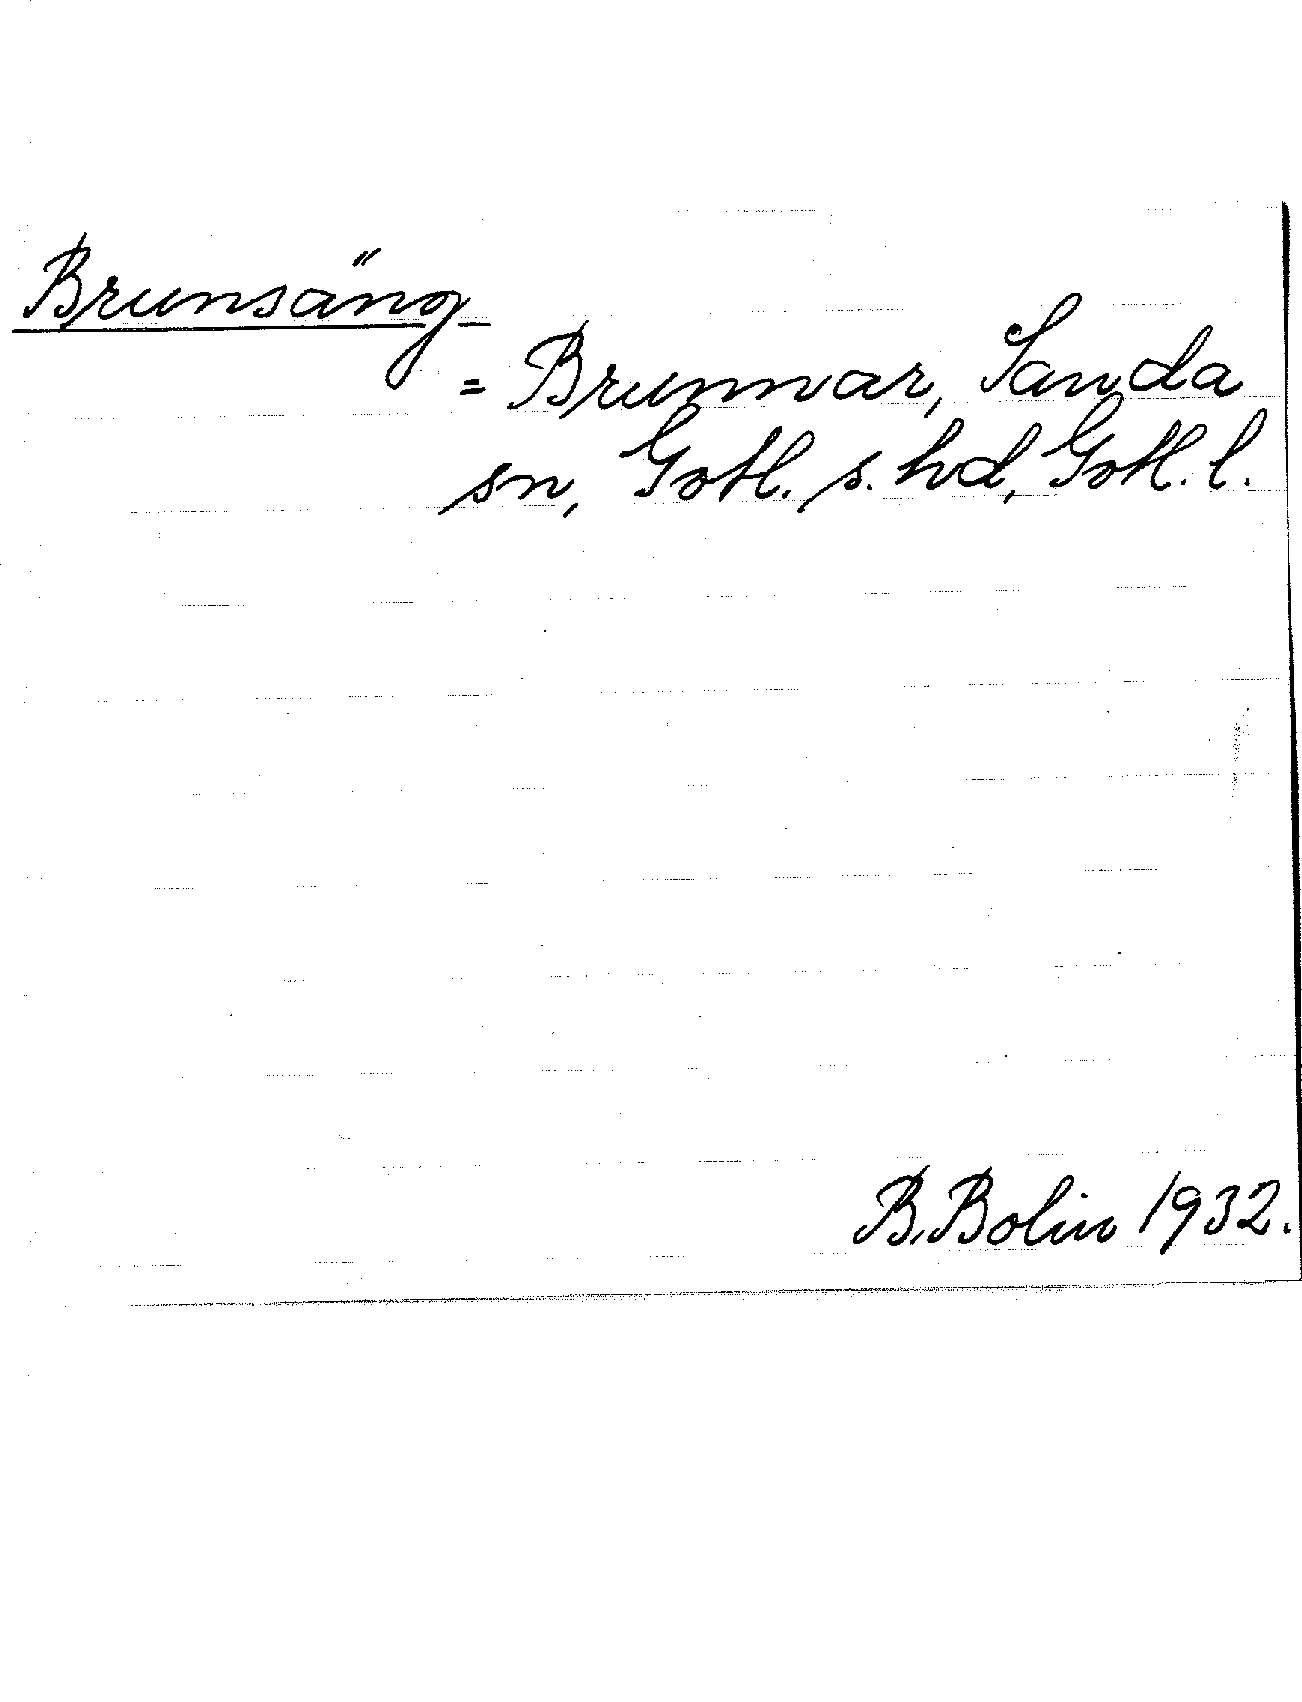 Brunsäng
= Brunnar, Sanda
sn, Gotl. s. hd, Gotl. l.
B. Bolin 1932.